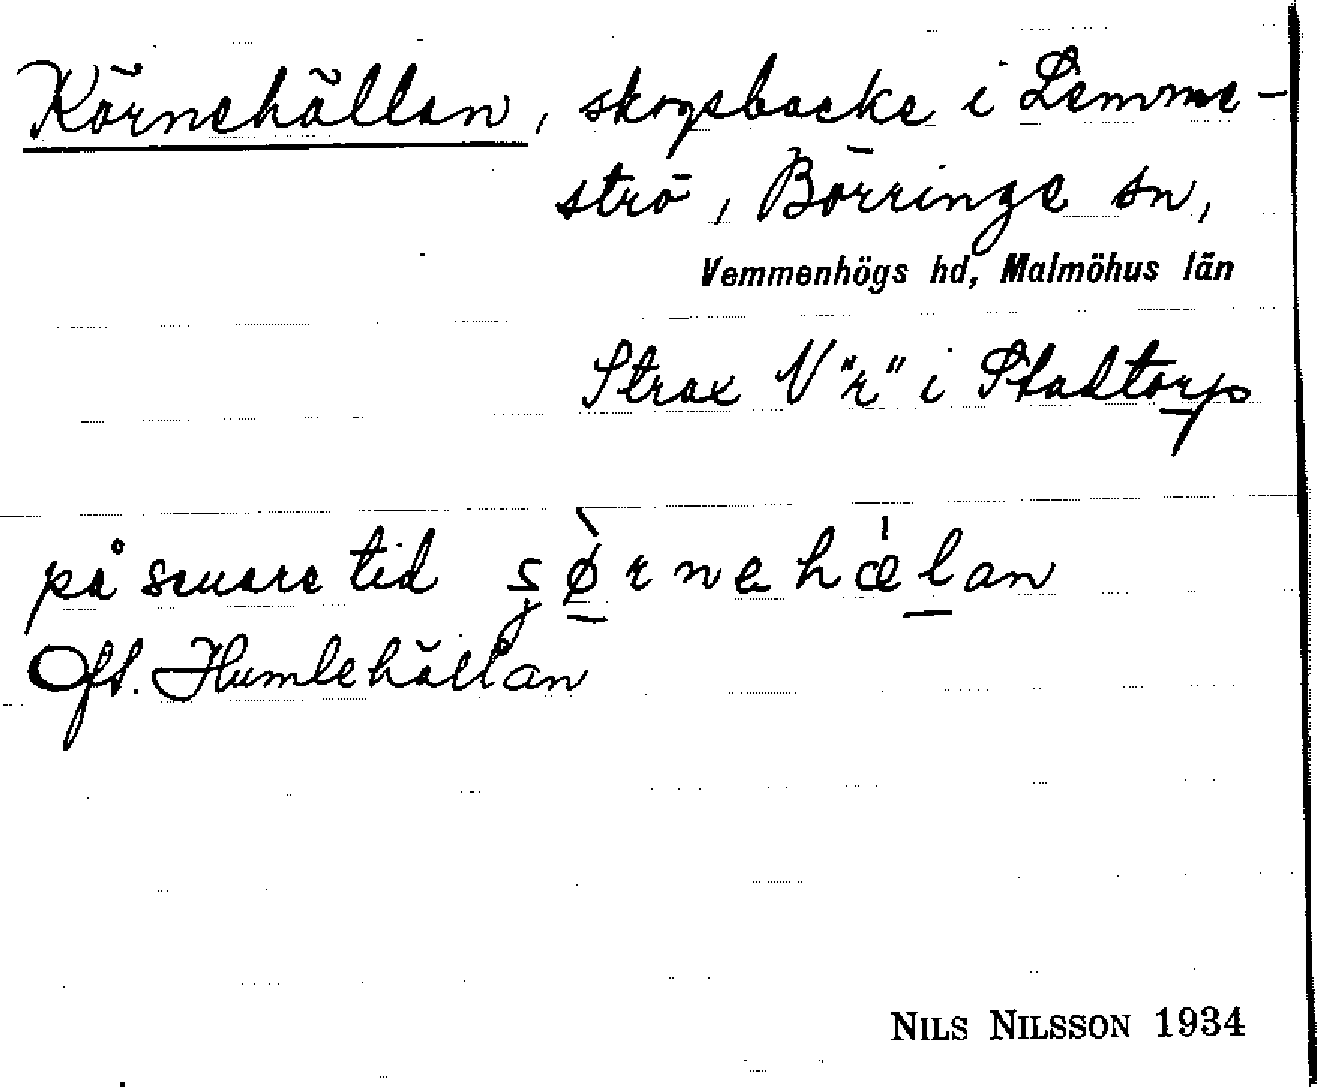 Körnehällan, skogsbacke i Lemme-
strö, Börringe sn,
Vemmenhögs hd, Malmöhus län
Strax V "r" i Stadtorp
på senare tid şø̀rnehælan
Oft. Humlehällan
NILS NILSSON 1934